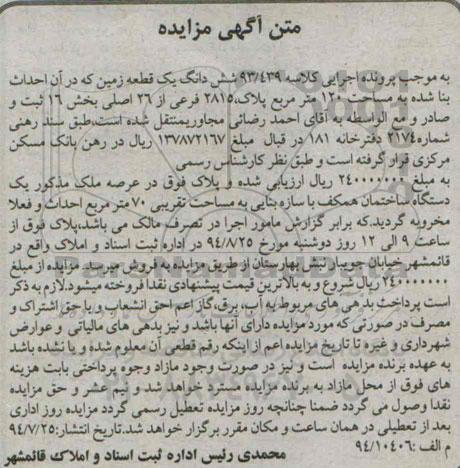 متن آگهی مزایده
به موجب پرونده اجرایی کلاسه ۹۳/۴۳۹ شش دانگ یک قطعه زمین که در آن احداث
بنا شده به مساحت ۱۲۰ متر مربع پلاک ۲۸۱۵ فرعی از ۲۶ اصلی بخش ۱۶ ثبت و
صادر و مع الواسطه به آقای احمد رضائی مجاورمنتقل شده است،طبق سند رهنی
شماره ۲۱۷۴ دفترخانه ۱۸۱ در قبال مبلغ ۱۳۷۸۷۲۱۶۷ ریال در رهن بانک مسکن
مرکزی قرار گرفته است و طبق نظر کارشناس رسمی
به مبلغ ۲۴۰۰۰۰۰۰۰ ریال ارزیابی شده و پلاک فوق در عرصه ملک مذکور یک
دستگاه ساختمان همکف با سازه بنایی به مساحت تقریبی ۷۰ متر مربع احداث و فعلا
مخروبه گردید.که برابر گزارش مامور اجرا در تصرف مالک می باشد،پلاک فوق از
ساعت ۹ الی ۱۲ روز دوشنبه مورخ ۹۴/۸/۲۵ در اداره ثبت اسناد و املاک واقع در
قائمشهر خیابان جویبار نبش بهارستان از طریق مزایده به فروش میرسد. مزایده از مبلغ
۲۴۰۰۰۰۰۰۰ ریال شروع و به بالاترین قیمت پیشنهادی نقدا فروخته میشود.لازم به ذکر
است پرداخت بدهی های مربوط به آب، برق،گاز اعم احق انشعاب و یا حق اشتراک و
مصرف در صورتی که مورد مزایده دارای آنها باشد و نیز بدهی های مالیاتی و عوارض
شهرداری و غیره تا تاریخ مزایده اعم از اینکه رقم قطعی آن معلوم شده و یا نشده باشد
به عهده برنده مزایده است و نیز در صورت وجود مازاد وجوه پرداختی بابت هزینه
های فوق از محل مازاد به برنده مزایده مسترد خواهد شد و نیم عشر و حق مزایده
نقدا وصول می گردد ضمنا چنانچه روز مزایده تعطیل رسمی گردد مزایده روز اداری
بعد از تعطیلی در همان ساعت و مکان مقرر برگزار خواهد شد.تاریخ انتشار:۹۴/۷/۲۵
م الف :۹۴/۱۰۴۰۶
محمدی رئیس اداره ثبت اسناد و املاک قائمشهر